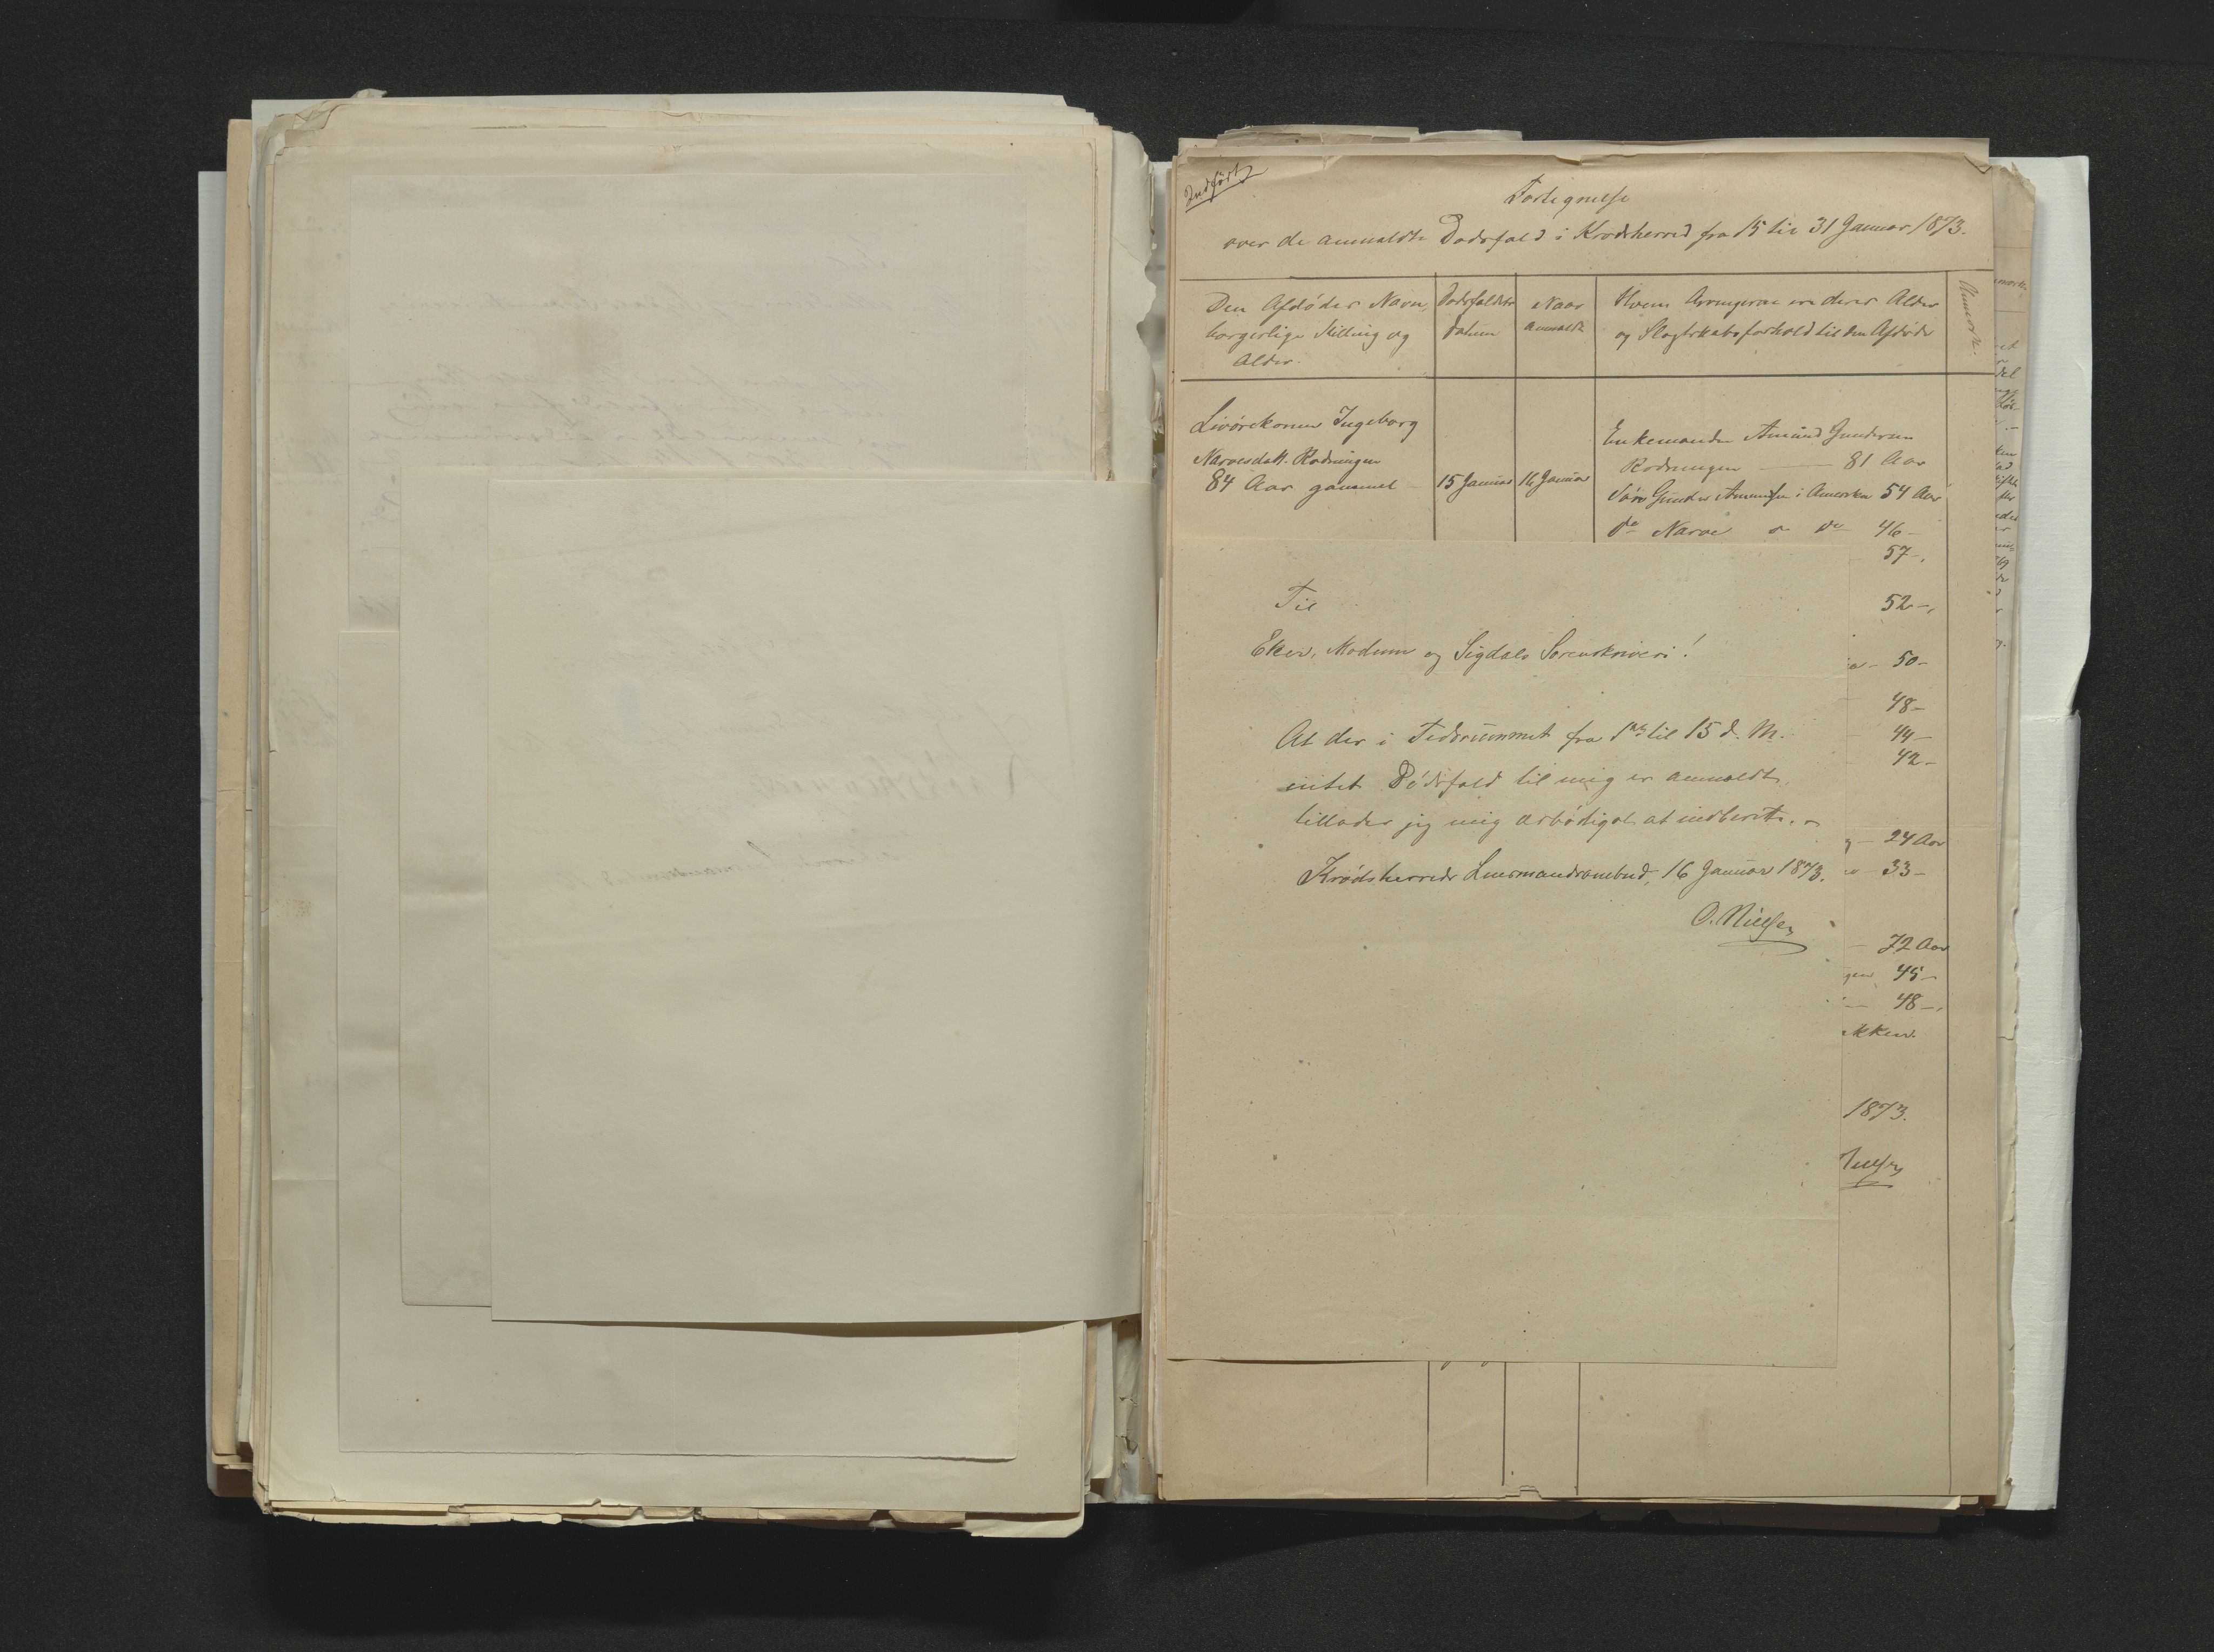 Indført
Fortegnelse
over de anmeldte Dødsfald i Krødsherred fra 15 til 31 Januar 1873.
Den Afdødes Navn,
borgerlige Stilling og
Alder.
Dødsfaldets
Datum
Naar
anmeldt
Hvem Arvingerne ere deres Alder
og Slægtskabsforhold til den Afdøde
Anmærk.
Livørekone Ingeborg
Narvesdatt. Rodningen
84 Aar gammel
15 Januar
16 Januar
Enkemanden Amund Gundersen
Rodningen — 81 Aar
Søn Gunder Amundsen i Amerika 54 Aar
do Narve do 46 –
57 –
52 –
50 –
48 –
44 –
42 –
24 Aar
33 –
72 Aar
45 –
48 –
1873.
Til
Eker, Modum og Sigdals Sorenskriveri!
At der i Tidsrummet fra 1ste til 15 d. M.
intet Dødsfald til mig er anmeldt,
tillader jeg mig ærbødigst at indberette. –
Krødsherreds Lensmandsombud, 16 Januar 1873.
O. Nielsen